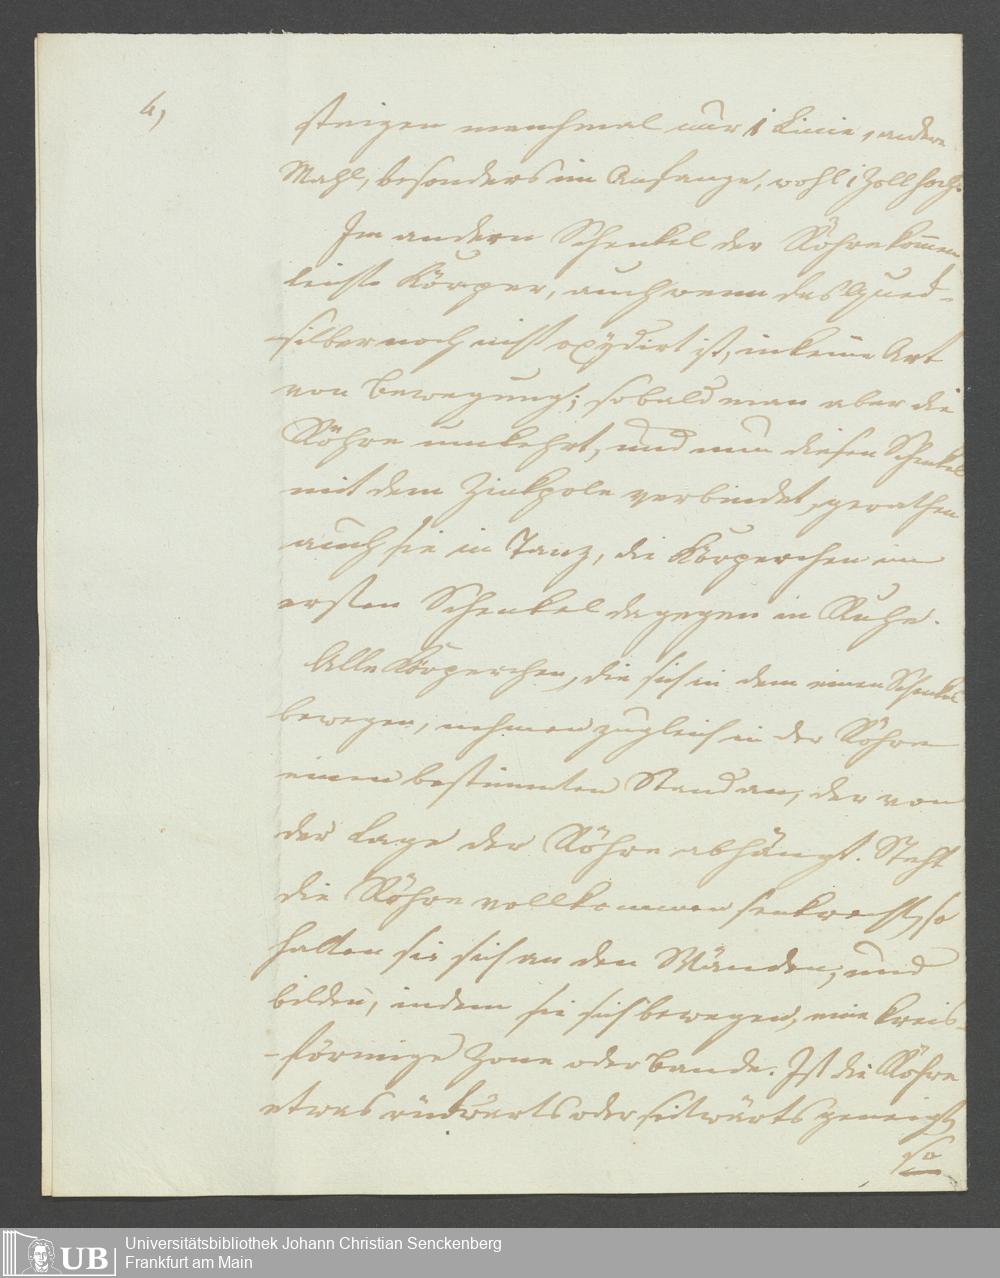 4,
steigen manchmal nur 1 Linie, andere
Mahl, besonders im Anfange, wohl 1 Zoll hoch.
Im andern Schenkel der Röhre kom̄en
leichte Körper, auch wenn das Queck-
-silber noch nicht oxÿdirt ist, in keine Art
von Bewegung; sobald man aber die
Röhre umkehrt, und nun diesen Schenkel
mit dem Zinkpole verbindet, gerathen
auch sie in Tanz, die Körperchen im
ersten Schenkel dagegen in Ruhe.
Alle Körperchen, die sich in dem einen Schenkel
bewegen, nehmen zugleich in der Röhre
einen bestimmten Stand an, der von
der Lage der Röhre abhängt. Steht
die Röhre vollkommen senkrecht, so
halten sie sich an den Wänden, und
bilden, indem sie sich bewegen, eine kreis-
-förmige Zone oder Bande. Ist die Röhre
etwas rückwärts oder seitwärts geneigt,
so
UB
Universitätsbibliothek Johann Christian Senckenberg
Frankfurt am Main